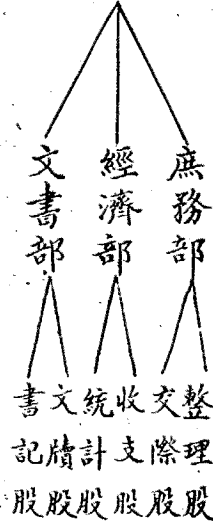 庶務部
經濟部
文書部
整理股
交際股
收支股
統計股
文牘股
書記股